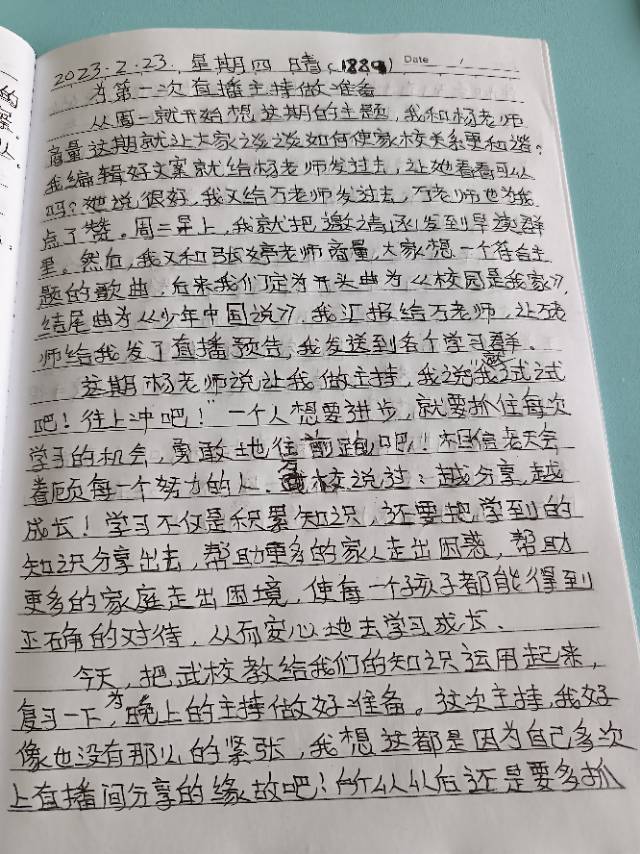 2023.2.23. 星期四 晴(1889) Date /
为第一次直播主持做准备
从周一就开始想这期的主题,我和杨老师
商量这期就让大家谈谈如何使家校关系更和谐。
我编辑好文案就给杨老师发过去,让她看看可以
吗?她说很好,我又给万老师发过去,万老师也为我
点了赞。周三早上,我就把邀请函发到早读群
里。然后,我又和张婷老师商量,大家想一个符合主
题的歌曲,后来我们定为开头曲为《校园是我家》,
结尾曲为《少年中国说》,我汇报给万老师,让万老
师给我发了直播预告,我发送到各个学习群。
这期杨老师说让我做主持,我说"我试试
吧!往上冲吧!"一个人想要进步,就要抓住每次
学习的机会,勇敢地往前跑吧!相信老天会
眷顾每一个努力的人.武校说过:越分享,越
成长!学习不仅是积累知识,还要把学到的
知识分享出去,帮助更多的家人走出困惑,帮助
更多的家庭走出困境,使每一个孩子都能得到
正确的对待,从而安心地去学习成长.
今天,把武校教给我们的知识运用起来,
复习一下,为晚上的主持做好准备。这次主持,我好
像也没有那么的紧张,我想这都是因为自己多次
上直播间分享的缘故吧!所以以后还是要多抓